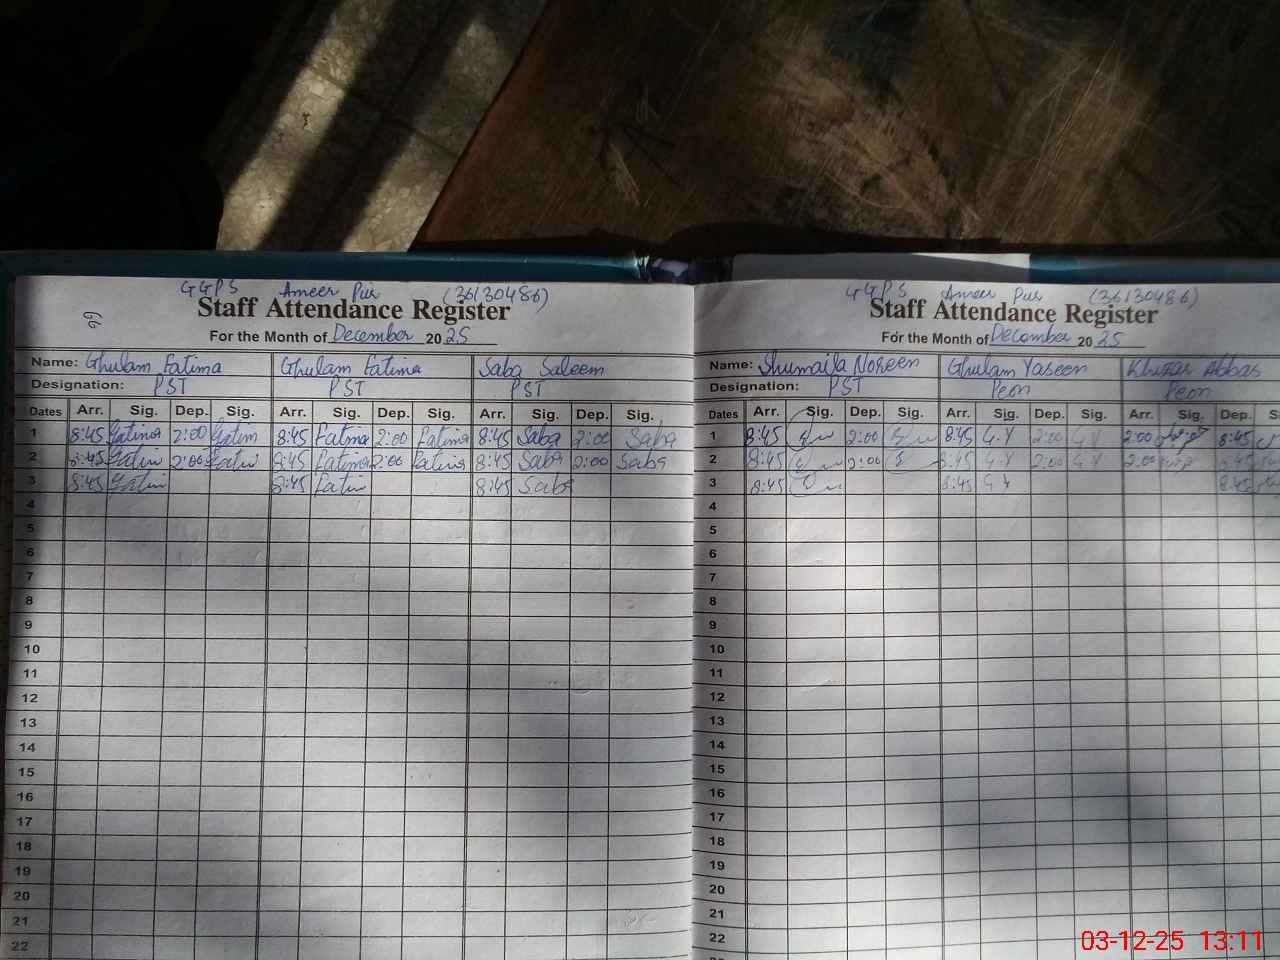 GGPS Ameer Pur (36130486)
Staff Attendance Register
For the Month of December 2025
Name: Ghulam Fatima Ghulam Fatima Saba Saleem
Designation: PST PST PST
Dates Arr. Sig. Dep. Sig. Arr. Sig. Dep. Sig. Arr. Sig. Dep. Sig.
1 8:45 Fatima 2:00 Fatim 8:45 Fatima 2:00 Fatima 8:45 Saba 2:00 Saba
2 8:45 Fatim 2:00 Fatim 8:45 Fatima 2:00 Fatima 8:45 Saba 2:00 Saba
3 8:45 Fatim 8:45 Fatim 8:45 Saba
4
5
6
7
8
9
10
11
12
13
14
15
16
17
18
19
20
21
22
GGPS Ameer Pur (36130486)
Staff Attendance Register
For the Month of December 2025
Name: Shumaila Noreen Ghulam Yaseen Khizar Abbas
Designation: PST Peon Peon
Dates Arr. Sig. Dep. Sig. Arr. Sig. Dep. Sig. Arr. Sig. Dep.
1 8:45 2:00 8:45 G.Y 2:00 G.Y 2:00 8:45
2 8:45 2:00 8:45 G.Y 2:00 G.Y 2:00 8:45
3 8:45 8:45 G.Y 8:45
4
5
6
7
8
9
10
11
12
13
14
15
16
17
18
19
20
21
22
03-12-25 13:11